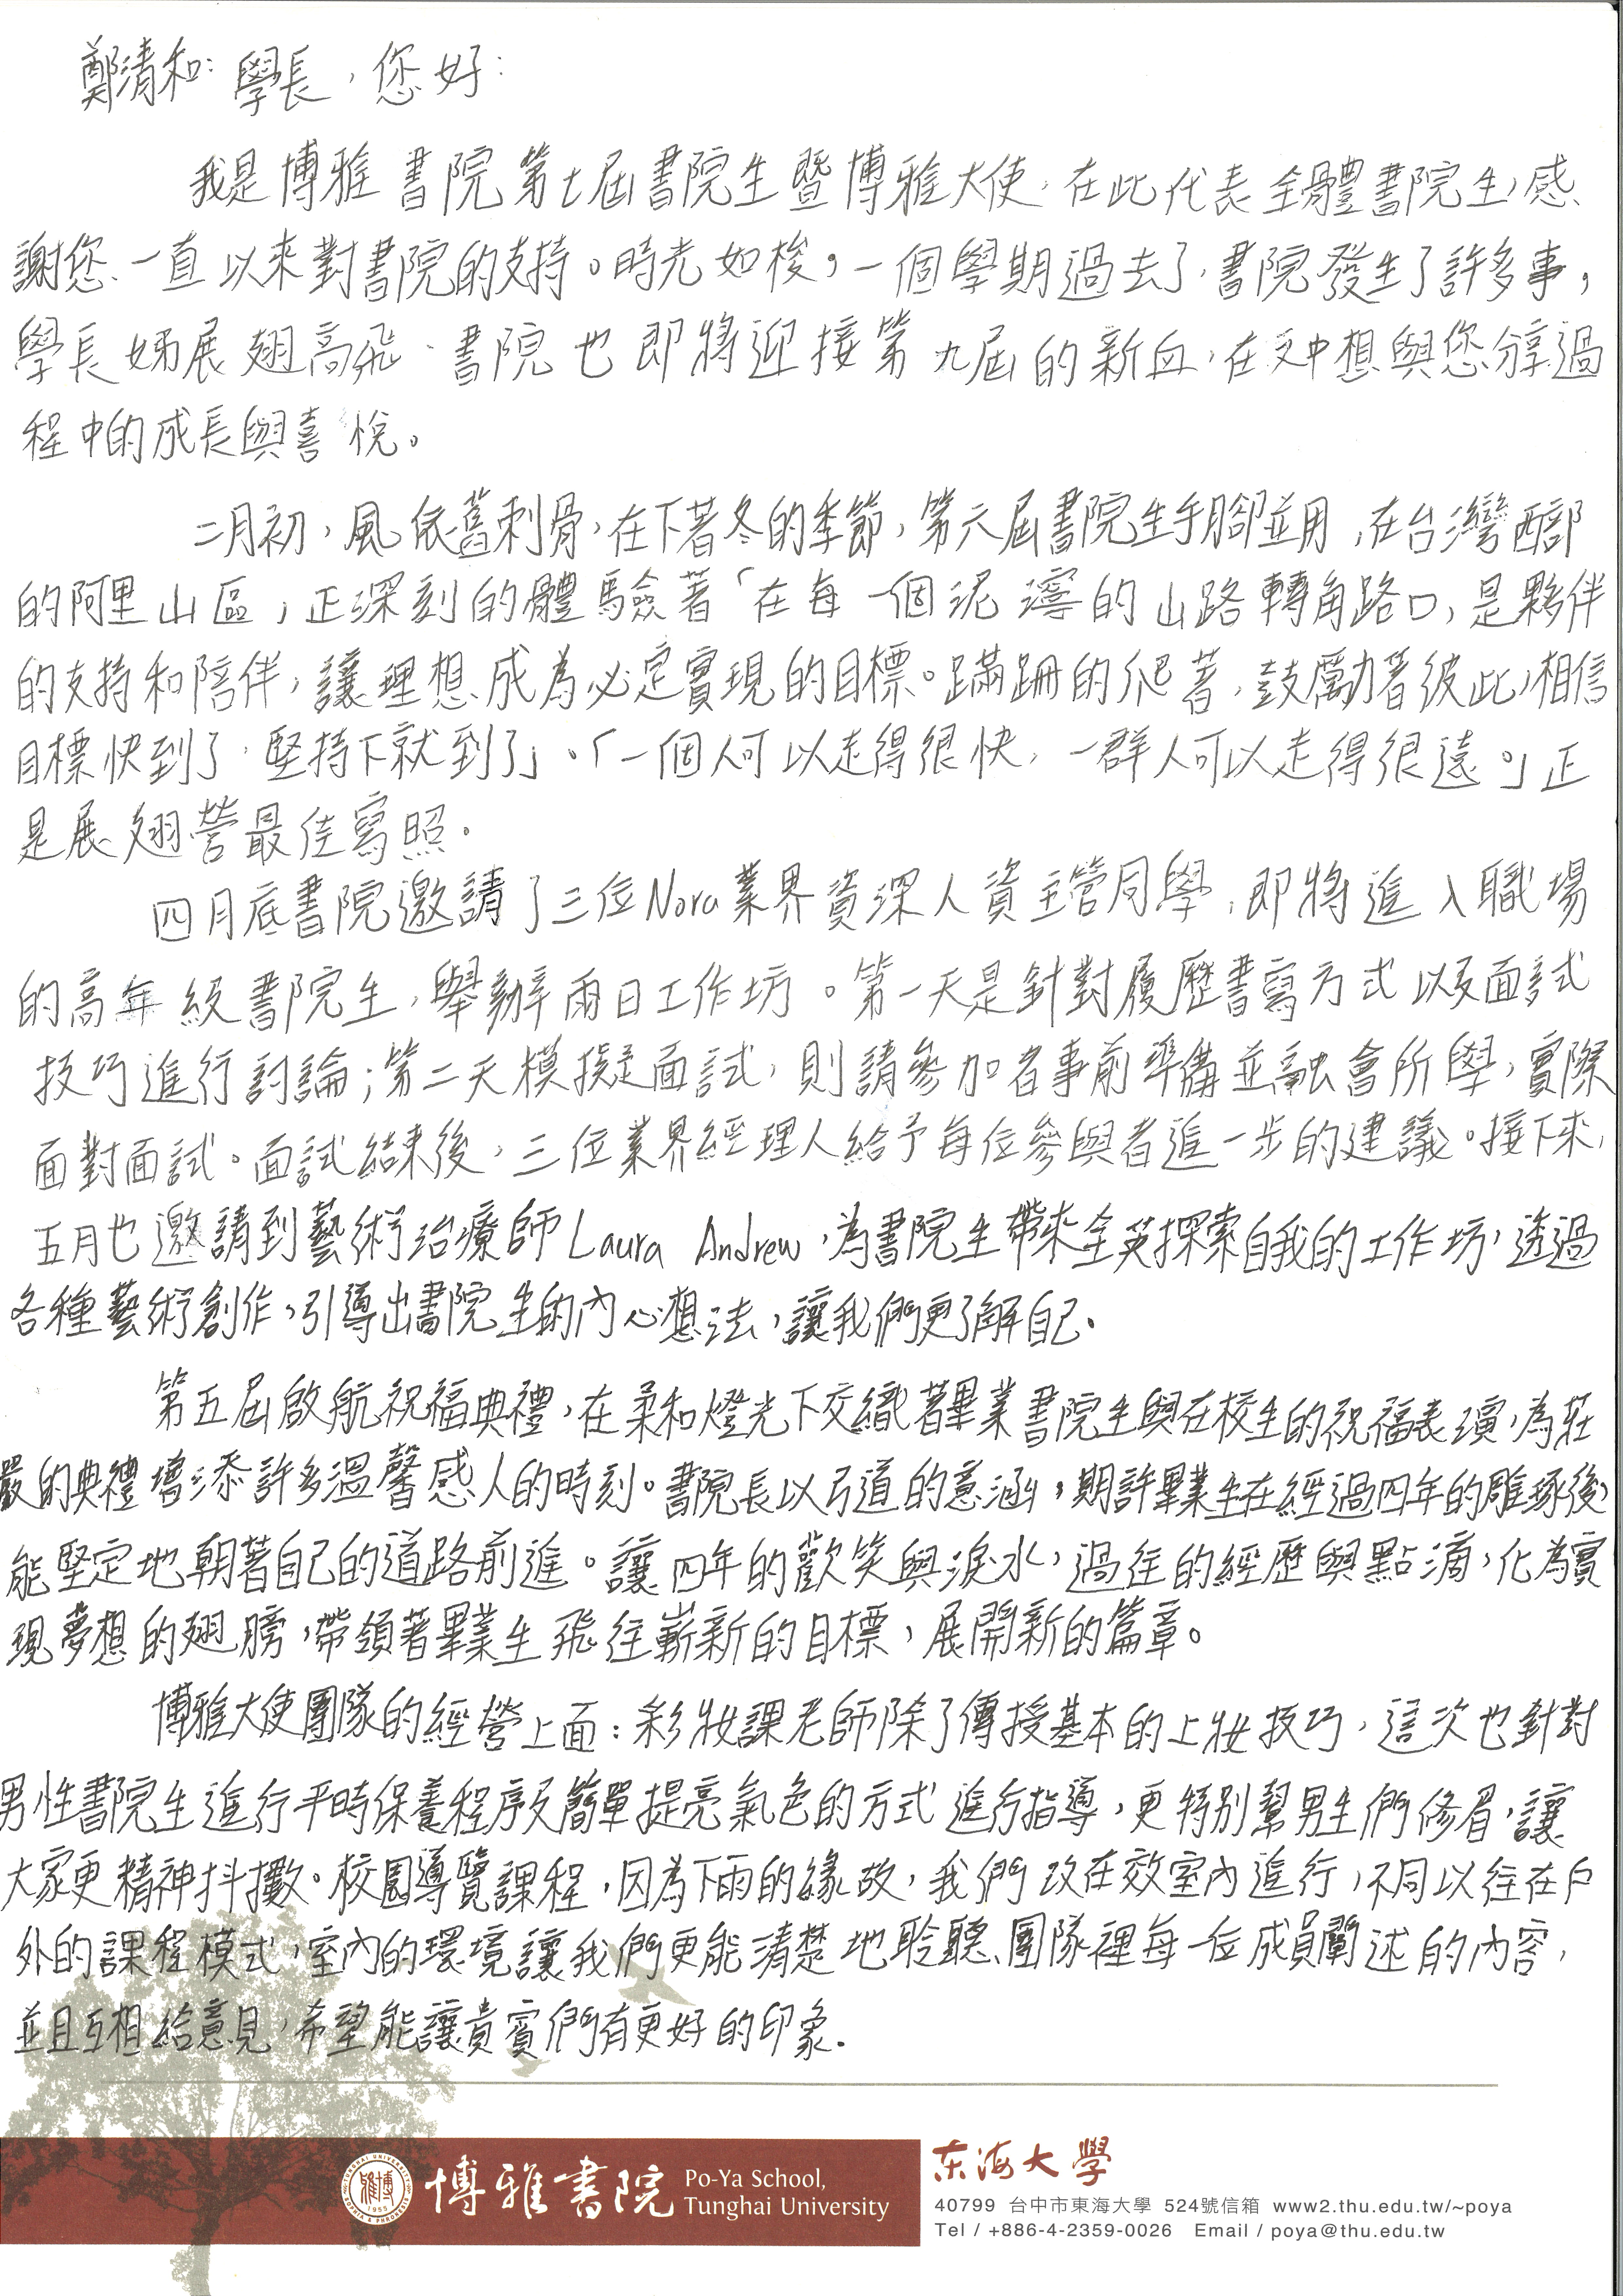 鄭清和：學長，您好：
我是博雅書院第七屆書院生暨博雅大使，在此代表全體書院生，感
謝您一直以來對書院的支持。時光如梭，一個學期過去了，書院發生了許多事，
學長姊展翅高飛，書院也即將迎接第九屆的新血，在文中想與您分享過
程中的成長與喜悅。
二月初，風依舊刺骨，在下著冬的季節，第六屆書院生手腳並用，在台灣西部
的阿里山區，正深刻的體驗著「在每一個泥濘的山路轉角路口，是夥伴
的支持和陪伴，讓理想成為必定實現的目標。蹣跚的爬著，鼓勵著彼此，相信
目標快到了，堅持下就到了」。「一個人可以走得很快，一群人可以走得很遠。」正
是展翅營最佳寫照。
四月底書院邀請了三位Nora業界資深人資主管同學，即將進入職場
的高年級書院生，舉辦兩日工作坊。第一天是針對履歷書寫方式以及面試
技巧進行討論；第二天模擬面試，則請參加者事前準備並融會所學，實際
面對面試。面試結束後，三位業界經理人給予每位參與者進一步的建議。接下來，
五月也邀請到藝術治療師Laura Andrew，為書院生帶來全英探索自我的工作坊，透過
各種藝術創作，引導出書院生的內心想法，讓我們更了解自己。
第五屆啟航祝福典禮，在柔和燈光下交織著畢業書院生與在校生的祝福表演，為莊
嚴的典禮增添許多溫馨感人的時刻。書院長以弓道的意涵，期許畢業生在經過四年的雕琢後，
能堅定地朝著自己的道路前進。讓四年的歡笑與淚水，過往的經歷與點滴，化為實
現夢想的翅膀，帶領著畢業生飛往嶄新的目標，展開新的篇章。
博雅大使團隊的經營上面：彩妝課老師除了傳授基本的上妝技巧，這次也針對
男性書院生進行平時保養程序及簡單提亮氣色的方式進行指導，更特別幫男生們修眉，讓
大家更精神抖擻。校園導覽課程，因為下雨的緣故，我們改在教室內進行，不同以往在戶
外的課程模式，室內的環境讓我們更能清楚地聆聽團隊裡每一位成員闡述的內容，
並且互相給意見，希望能讓貴賓們有更好的印象。
TUNGHAI UNIVERSITY
SOPHIA & PHRONESIS
1955
博雅書院 Po-Ya School,
Tunghai University
东海大學
40799 台中市東海大學 524號信箱 www2.thu.edu.tw/~poya
Tel / +886-4-2359-0026 Email / poya@thu.edu.tw